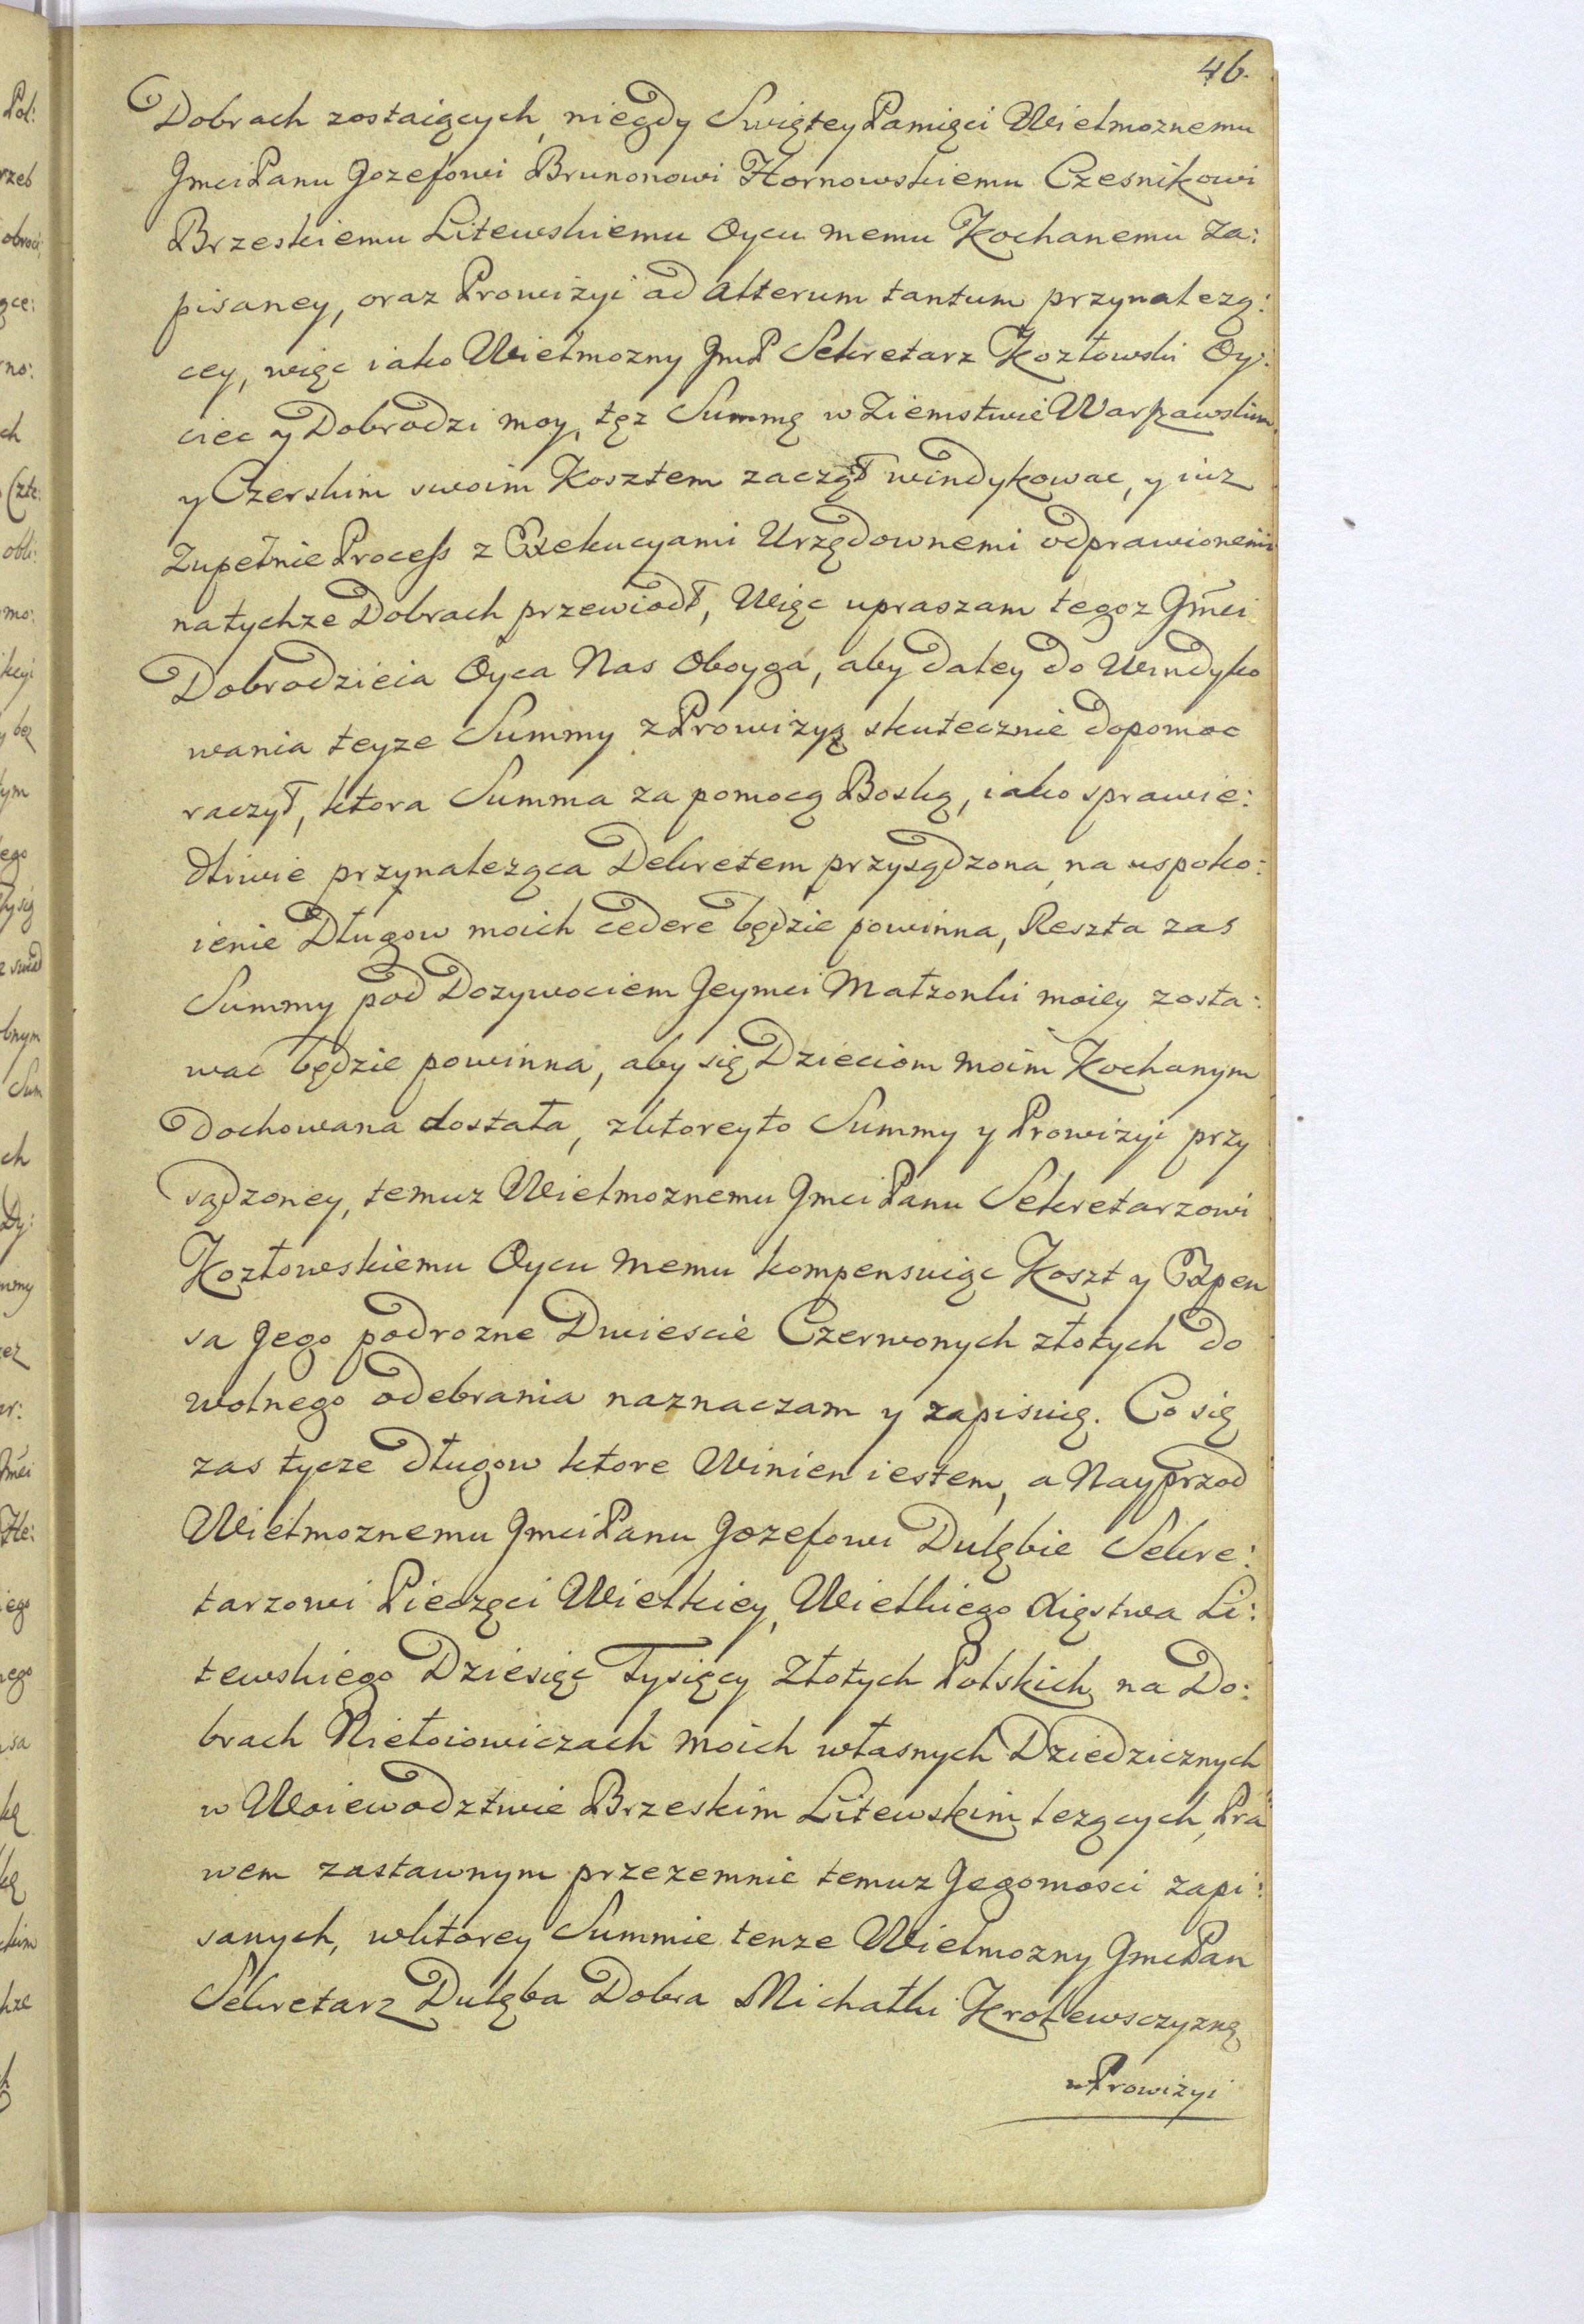 46.
Dobrach zostaiących, niegdy Swiętey Pamięci Wielmoznemu
Jmci Panu Jozefowi Brunonowi Hornowskiemu Czesnikowi
Brzeskiemu Litewskiemu Oycu memu Kochanemu Za:
pisaney, oraz Prowizyi ad Alterum tantum przynalezą:
cey, więc iako Wielmozny JmP Sekretarz Kozłowski Oy:
ciec y Dobrodzi moy, tęz Summę w Ziemstwie Warszawskim
y Czerskim swoim Kosztem zaczął windykowac, y iuz
Zupełnie Process z Exekucyami Urzędownemi odprawionemi
na tychze Dobrach przewiodł, Więc upraszam tegoz Jmci
Dobrodzieia Oyca Nas Oboyga, aby daley do Windyko
wania teyze Summy z Prowizyą skutecznie dopomoc
raczył, ktora Summa za pomocą Boską, iako sprawie:
dliwie przynaleząca Dekretem przysądzona, na uspoko:
ienie Długow moich cedere będzie powinna, Reszta zas
Summy pod Dozywociem Jeymci Małzonki moiey zosta:
wac będzie powinna, aby się Dzieciom moim Kochanym
Dochowana dostała, z ktorey to Summy y Prowizyi przy
sądzoney, temuz Wielmoznemu Jmci Panu Sekretarzowi
Kozłowskiemu Oycu memu kompensuiąc Koszt y Expen
sa Jego podrozne Dwiescie Czerwonych złotych do
wolnego odebrania naznaczam y zapisuię. Co się
zas tycze długow ktore Winien iestem, a Nayprzod
Wielmoznemu Jmci Panu Jozefowi Dulębie Sekre:
tarzowi Pieczęci Wielkiey, Wielkiego Xięstwa Li:
tewskiego Dziesięc Tysięcy Złotych Polskich na Do:
brach Nietoiowiczach moich własnych Dziedzicznych
w Woiewodztwie Brzeskim Litewskim lezących, Pra
wem zastawnym przezemnie temuz Jegomosci zapi:
sanych, w ktorey Summie tenze Wielmozny Jmc Pan
Sekretarz Dulęba Dobra Michałki Krolewsczyznę
w Prowizyi